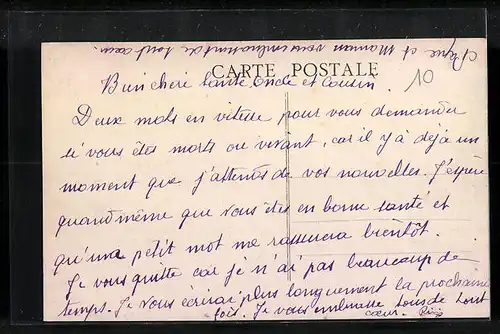 Mémé et Maman vous embrassent de tout cœur.
CARTE POSTALE
10
Bien chère tante, Oncle et Cousin.
Deux mots en vitesse pour vous demander
si vous êtes morts ou vivant, car il y à déjà un
moment que j'attends de vos nouvelles. J'espère
quand même que vous êtes en bonne santé et
qu'un petit mot me rassurera bientôt.
Je vous quitte car je n'ai pas beaucoup de
temps. Je vous écrirai plus longuement la prochaine
fois. Je vous embrasse tous de tout
cœur.